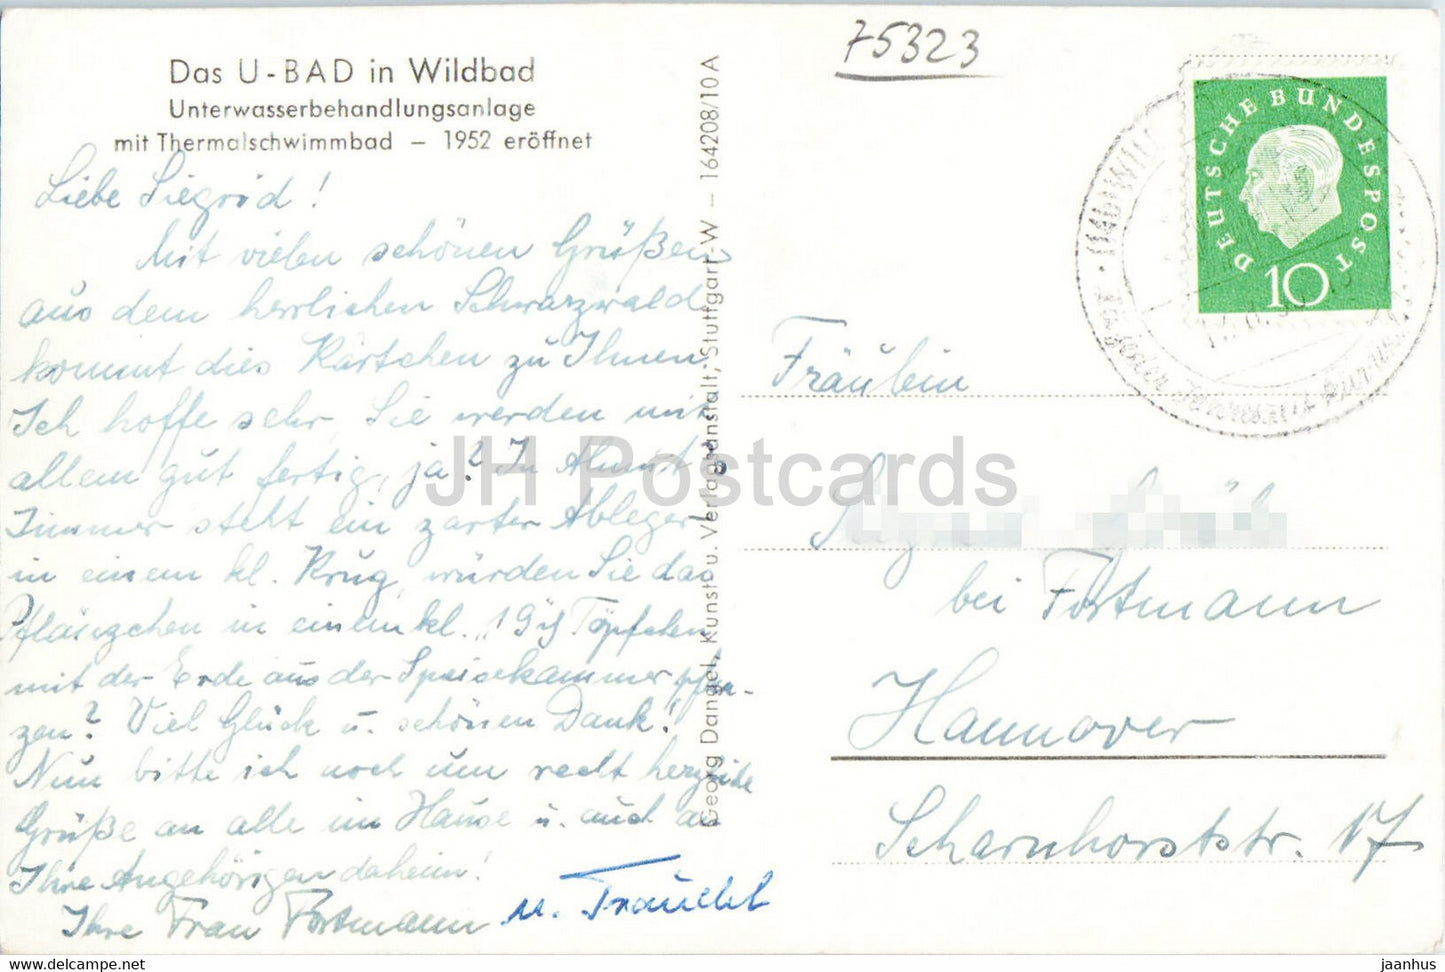 75323
Das U-BAD in Wildbad
Unterwasserbehandlungsanlage
mit Thermalschwimmbad – 1952 eröffnet
Liebe Siegrid!
Mit vielen schönen Grüßen
aus dem herrlichen Schwarzwald
kommt dies Kärtchen zu Ihnen
Ich hoffe sehr, Sie werden mit
allem gut fertig, ja? In
Zimmer steht ein zarter Ableger
in einem kl. Krug, würden Sie das
Pflänzchen in einem kl. Töpfchen
mit der Erde aus der Speisekammer pflan-
zen? Viel Glück u. schönen Dank!
Nun bitte ich noch um recht herzliche
Grüße an alle im Hause u. auch an
Ihre Angehörigen daheim!
Ihre Frau Fortmann u.
Georg Dangel, Kunst- u. Verlagsanstalt, Stuttgart-W – 164208/10 A
DEUTSCHE BUNDESPOST
10
Fräulein
bei Fortmann
Hannover
Scharnhorststr. 17
JH Postcards
www.delcampe.net
jaanhus